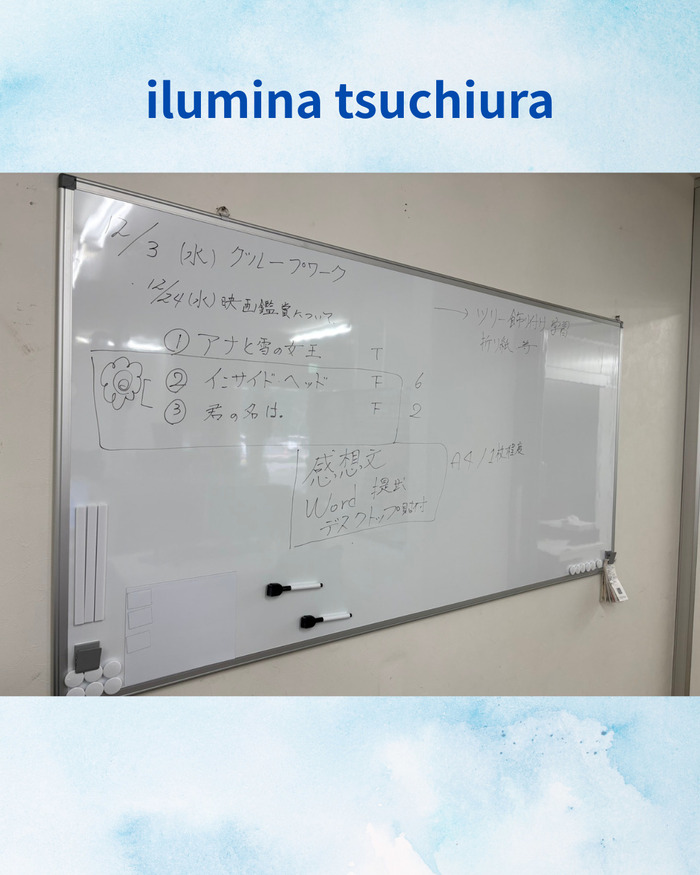 ilumina tsuchiura
12/3 (水) グループワーク
12/24 (水) 映画鑑賞について
① アナと雪の女王 T
② インサイドヘッド F 6
③ 君の名は。 F 2
→ ツリー飾り付け
折り紙
感想文
Word 提出
デスクトップ貼付
A4/1枚程度